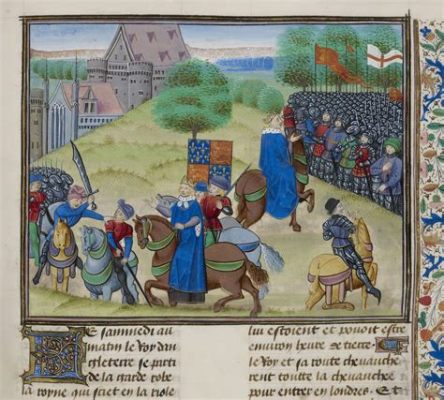 LE sammedi au
matin le Roy dan
gleterre se parti
de la garde robe
la royne qui siet en la riole
lui estoient et pouoit estre
enuiron heure de tierce
le Roy et sa route cheuauche
rent toutte la cheuauchee
pour entrer en londres. Et